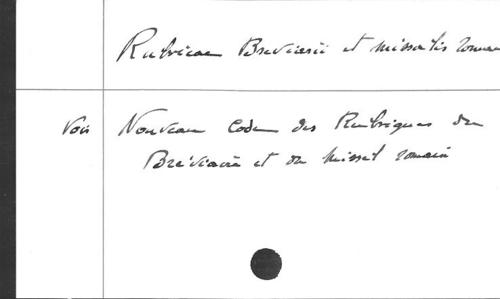 Rubricae Breviarii et missalis roman
Voir Nouveau Code des Rubriques du
Bréviaire et du missel romain